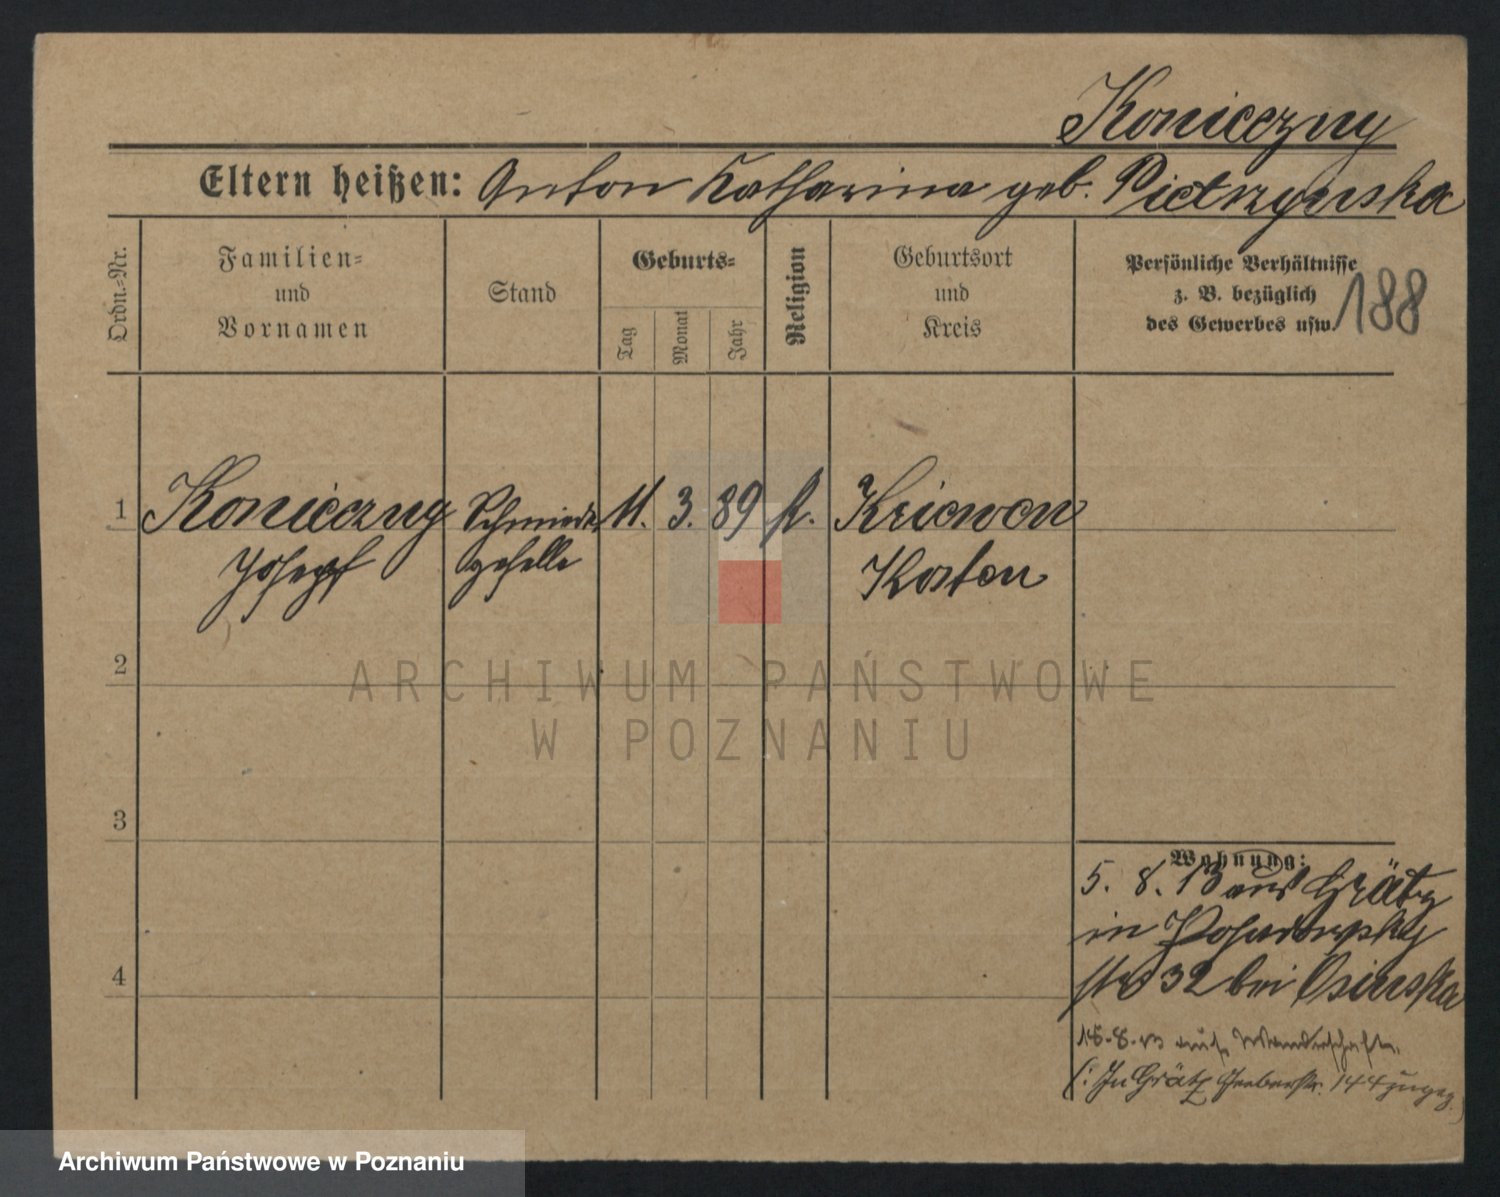 Koniczny
Eltern heißen: Anton Katharina geb. Pietrzynska
Ordn.=Nr.
Familien=
und
Vornamen
Stand
Geburts=
Tag
Monat
Jahr
Religion
Geburtsort
und
Kreis
Persönliche Verhältnisse
z. B. bezüglich
des Gewerbes usw.
188
1 Koniczny Schmiede 11. 3. 89 k. Kriewen
Josepf geselle Kosten
2
ARCHIWUM PAŃSTWOWE
W POZNANIU
3
Wohnung:
5. 8. 13 aus Grätz
in Posadowsky
str 32 bei Osinska
4
18.8.13 auf Wanderschaft.
(: In Grätz 144 zugez.
Archiwum Państwowe w Poznaniu